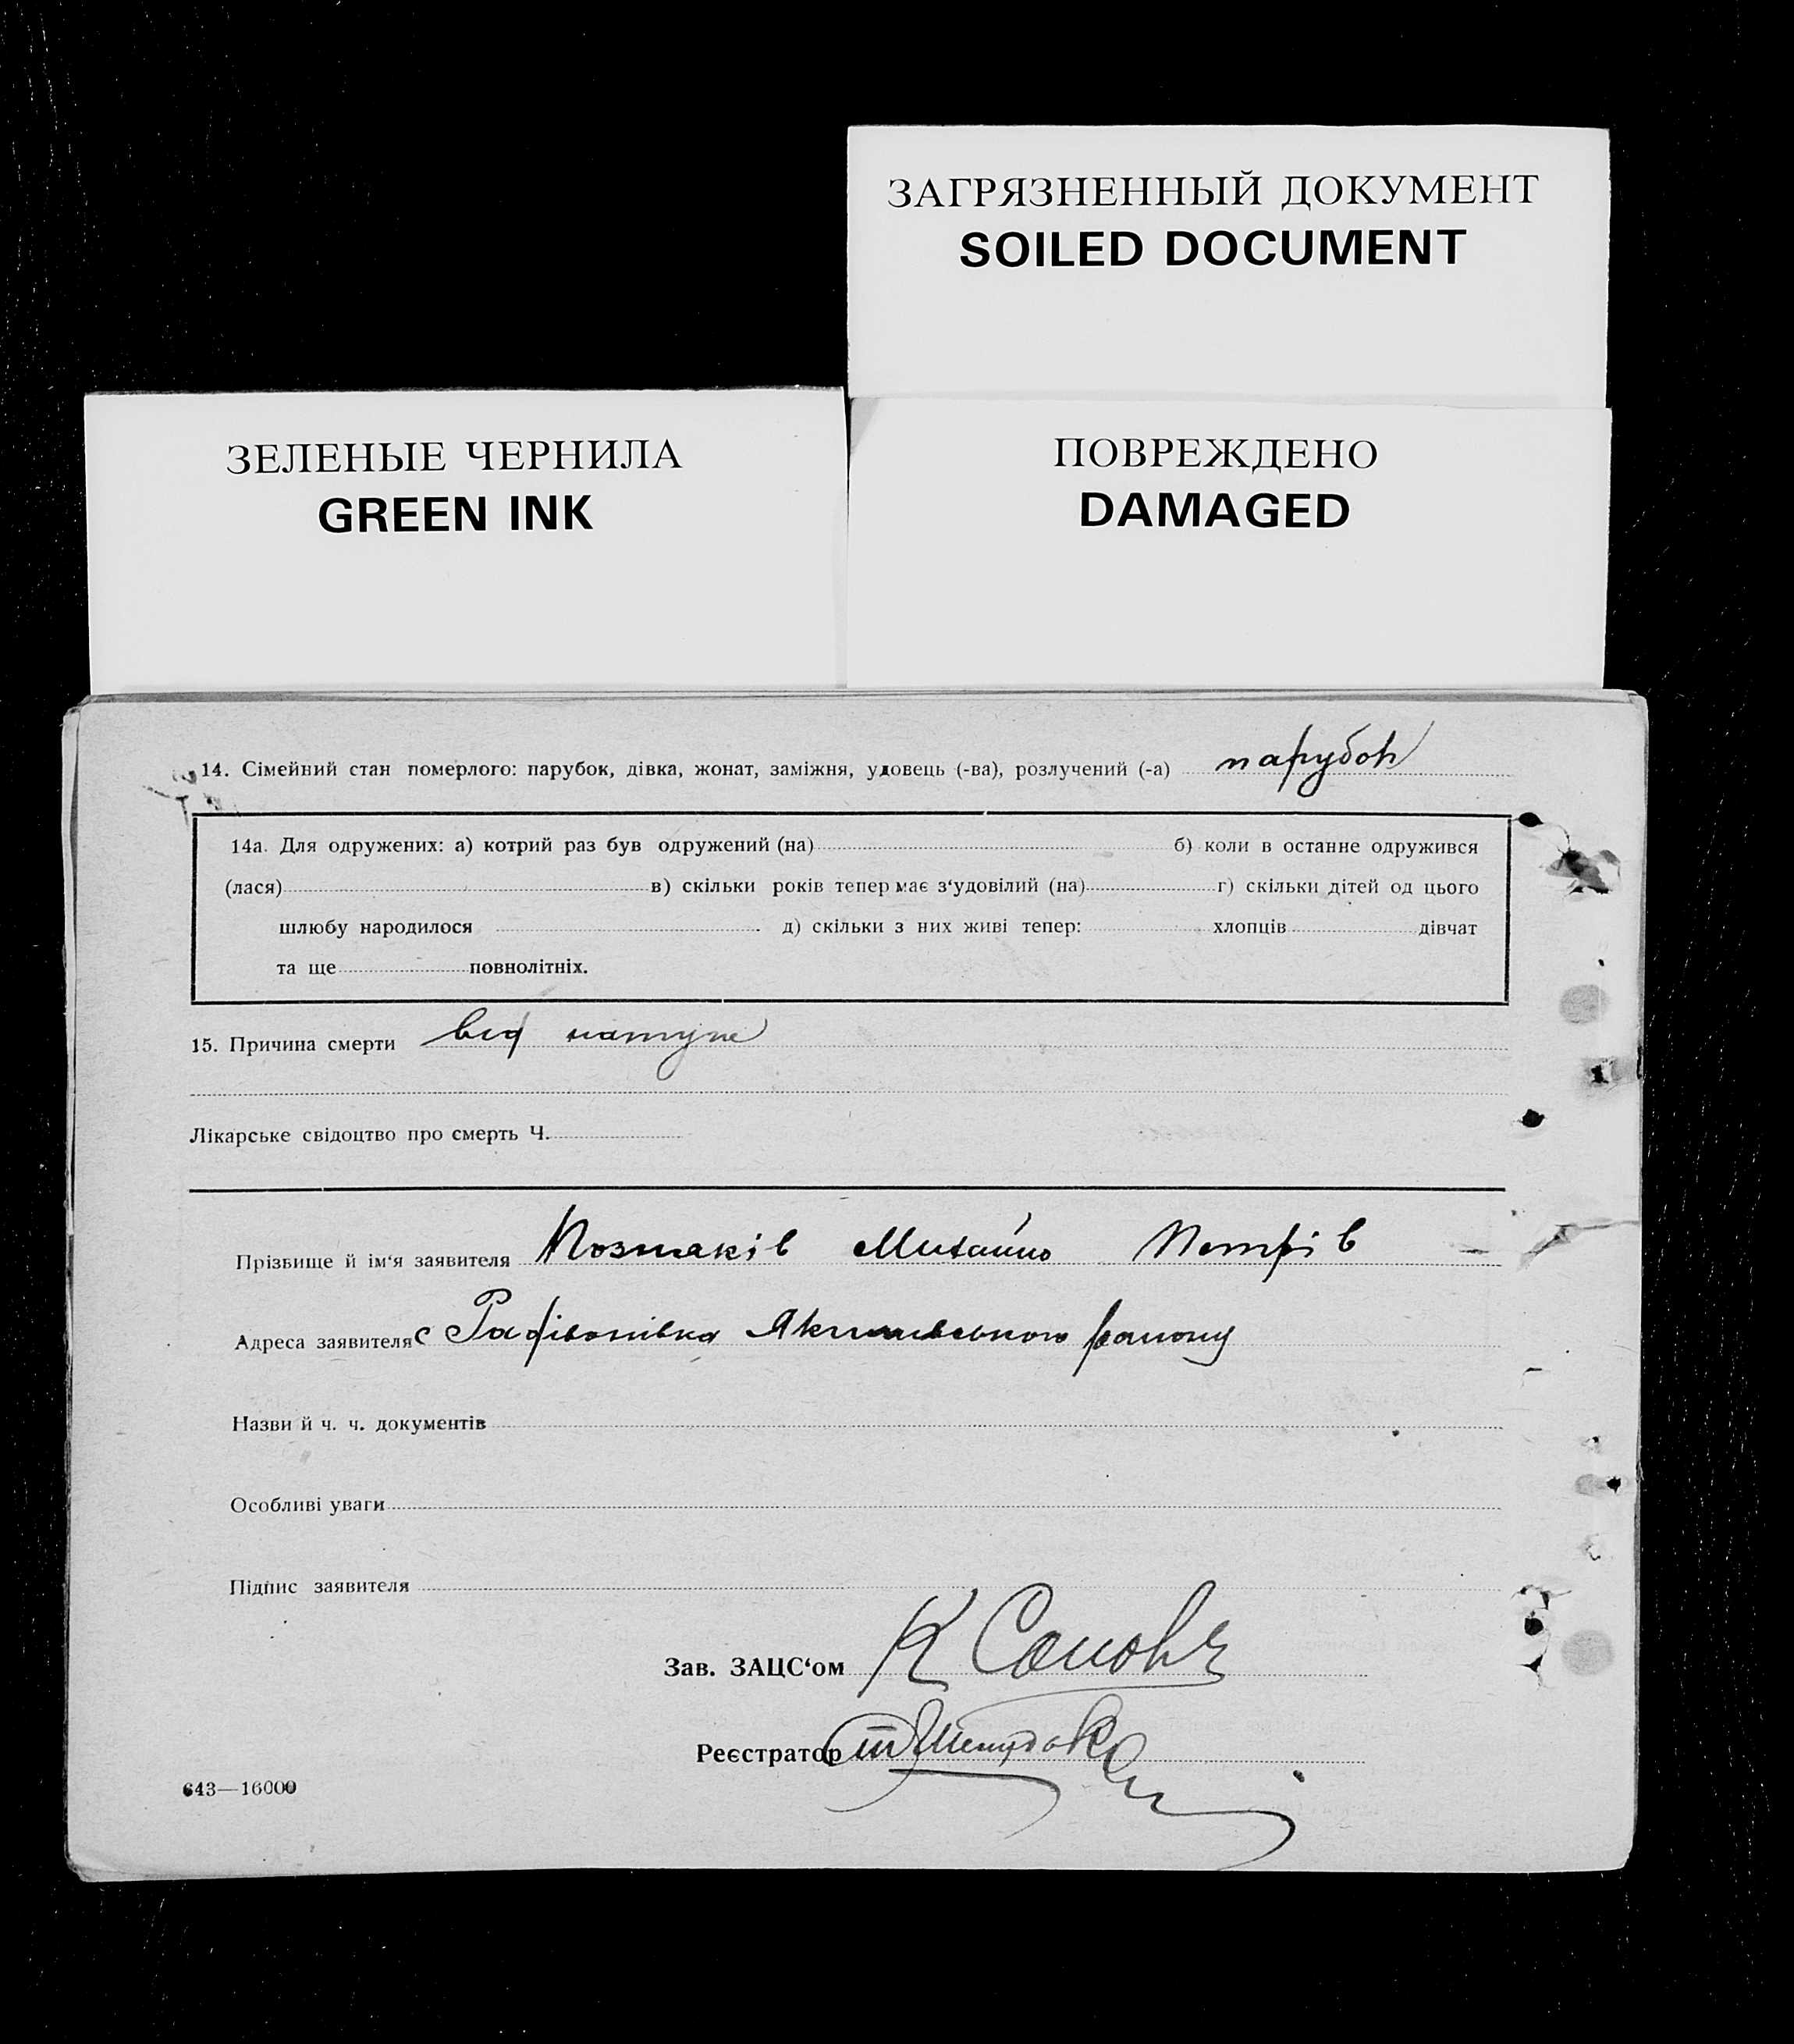 ЗАГРЯЗНЕННЫЙ ДОКУМЕНТ
SOILED DOCUMENT
ЗЕЛЕНЫЕ ЧЕРНИЛА
GREEN INK
ПОВРЕЖДЕНО
DAMAGED
14. Сімейний стан померлого: парубок, дівка, жонат, заміжня, удовець (-ва), розлучений (-а) парубок
14а. Для одружених: а) котрий раз був одружений (на) б) коли в останне одружився
(лася) в) скільки років тепер має з‘удовілий (на) г) скільки дітей од цього
шлюбу народилося д) скільки з них живі тепер: хлопців дівчат
та ще повнолітніх.
15. Причина смерти від
Лікарське свідоцтво про смерть Ч.
Прізвище й ім‘я заявителя Михайло Петрів
Адреса заявителя с району
Назви й ч. ч. документів
Особливі уваги
Підпис заявителя
Зав. ЗАЦС‘ом К
Реєстратор
643—16000